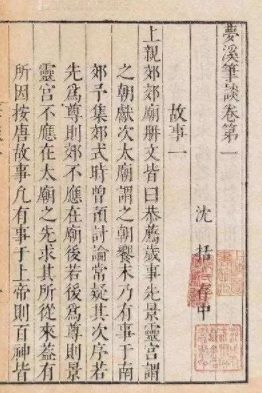 夢溪筆談卷第一
沈括存中
故事一
上親郊郊廟冊文皆曰恭薦歲事先景靈宮謂
之朝獻次太廟謂之朝饗末乃有事于南
郊予集郊式時曾預討論常疑其次序若
先為尊則郊不應在廟後若後為尊則景
靈宮不應在太廟之先求其所從來蓋有
所因按唐故事凡有事于上帝則百神皆